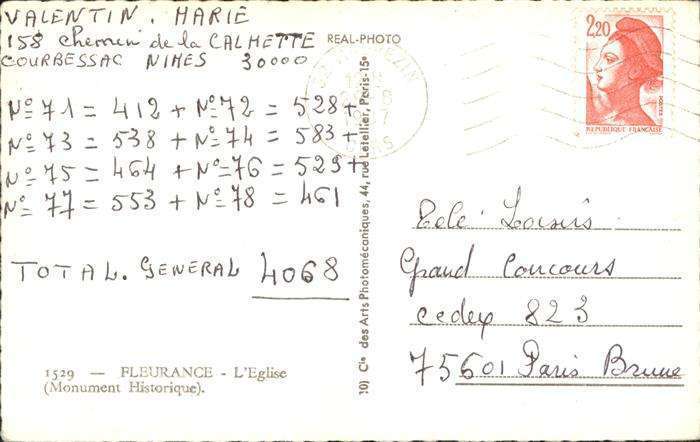 VALENTIN. MARIE
158 chemin de la CALMETTE
COURBESSAC NIMES 30000
N° 71 = 412 + N° 72 = 528 +
N° 73 = 538 + N° 74 = 583 +
N° 75 = 464 + N° 76 = 529 +
N° 77 = 553 + N° 78 = 461
TOTAL. GENERAL 4068
1529 — FLEURANCE - L'Eglise
(Monument Historique).
REAL-PHOTO
Cie des Arts Photomécaniques, 44, rue Letellier, Paris-15e
2,20
POSTES
REPUBLIQUE FRANÇAISE
Télé Loisirs
Grand Concours
cedex 823
75601 Paris Brune